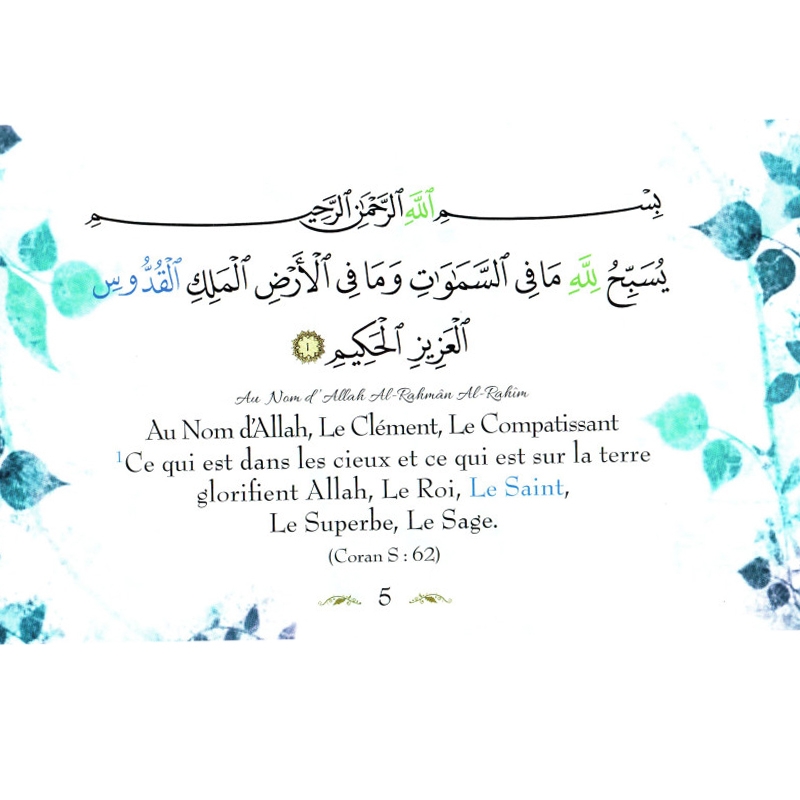 بِسْمِ ٱللَّهِ ٱلرَّحْمَٰنِ ٱلرَّحِيمِ
يُسَبِّحُ لِلَّهِ مَا فِى ٱلسَّمَٰوَٰتِ وَمَا فِى ٱلْأَرْضِ ٱلْمَلِكِ ٱلْقُدُّوسِ
ٱلْعَزِيزِ ٱلْحَكِيمِ ١
Au Nom d'Allah Al-Rahmân Al-Rahîm
Au Nom d'Allah, Le Clément, Le Compatissant
¹Ce qui est dans les cieux et ce qui est sur la terre
glorifient Allah, Le Roi, Le Saint,
Le Superbe, Le Sage.
(Coran S : 62)
5